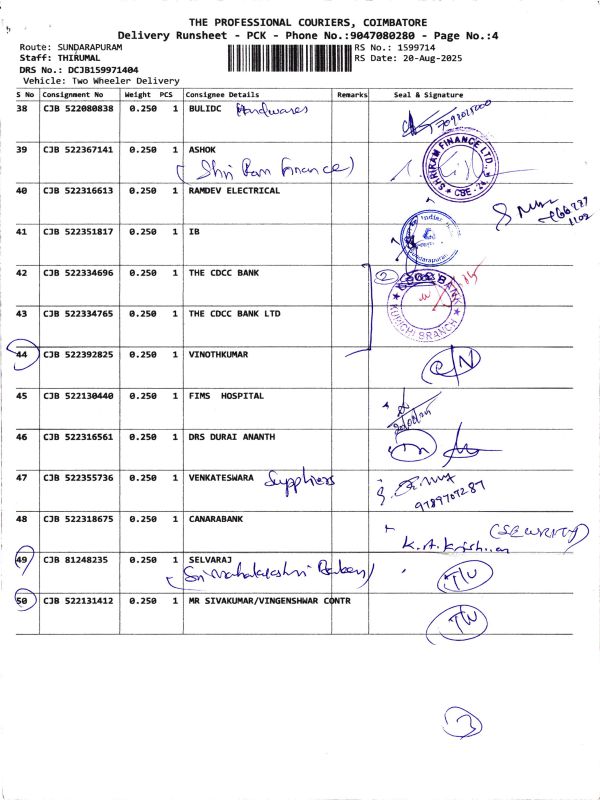 THE PROFESSIONAL COURIERS, COIMBATORE
Delivery Runsheet - PCK - Phone No.:9047080280 - Page No.:4
Route: SUNDARAPURAM RS No.: 1599714
Staff: THIRUMAL RS Date: 20-Aug-2025
DRS No.: DCJB159971404
Vehicle: Two Wheeler Delivery
S No Consignment No Weight PCS Consignee Details Remarks Seal & Signature
38 CJB 522080838 0.250 1 BULIDC Hardwares
39 CJB 522367141 0.250 1 ASHOK
(Shri Ram Finance)
SHRIRAM FINANCE LTD. CBE - 24
40 CJB 522316613 0.250 1 RAMDEV ELECTRICAL
41 CJB 522351817 0.250 1 IB
42 CJB 522334696 0.250 1 THE CDCC BANK 2
CDCC BANK KURICHI BRANCH
43 CJB 522334765 0.250 1 THE CDCC BANK LTD
44 CJB 522392825 0.250 1 VINOTHKUMAR
45 CJB 522130440 0.250 1 FIMS HOSPITAL
46 CJB 522316561 0.250 1 DRS DURAI ANANTH
47 CJB 522355736 0.250 1 VENKATESWARA Suppliers
9789707287
48 CJB 522318675 0.250 1 CANARABANK
(SECURITY)
K.A.Krishnan
49 CJB 81248235 0.250 1 SELVARAJ
(Sri Mahalakshmi Bakery)
50 CJB 522131412 0.250 1 MR SIVAKUMAR/VINGENSHWAR CONTR